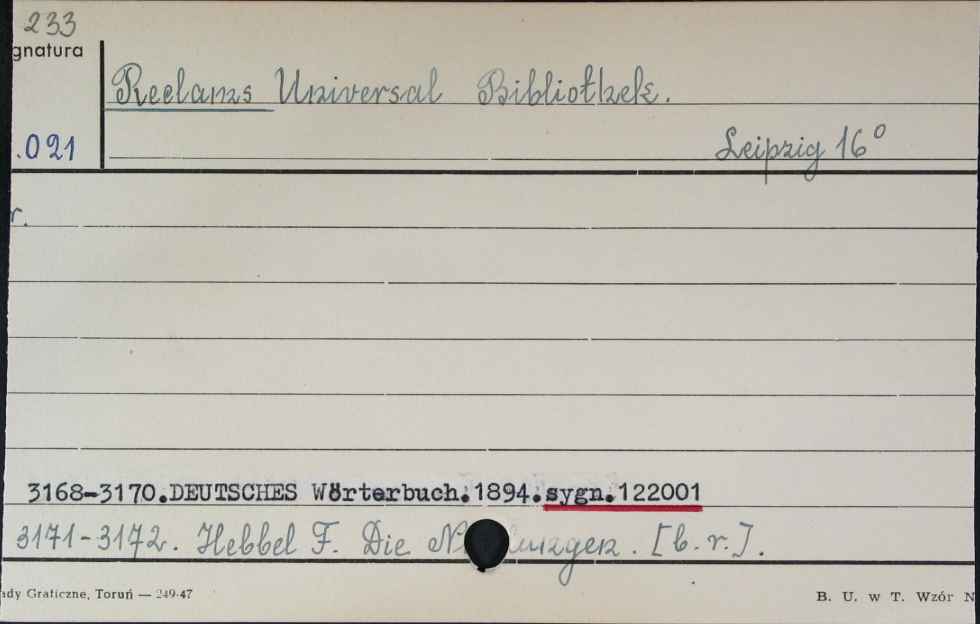 233
gnatura
Reclams Universal Bibliothek.
.021
Leipzig 16°
r.
3168-3170.DEUTSCHES Wörterbuch.1894.sygn.122001
3171-3172. Hebbel F. Die [b.r.].
ady Graficzne, Toruń — 249-47
B. U. w T. Wzór N